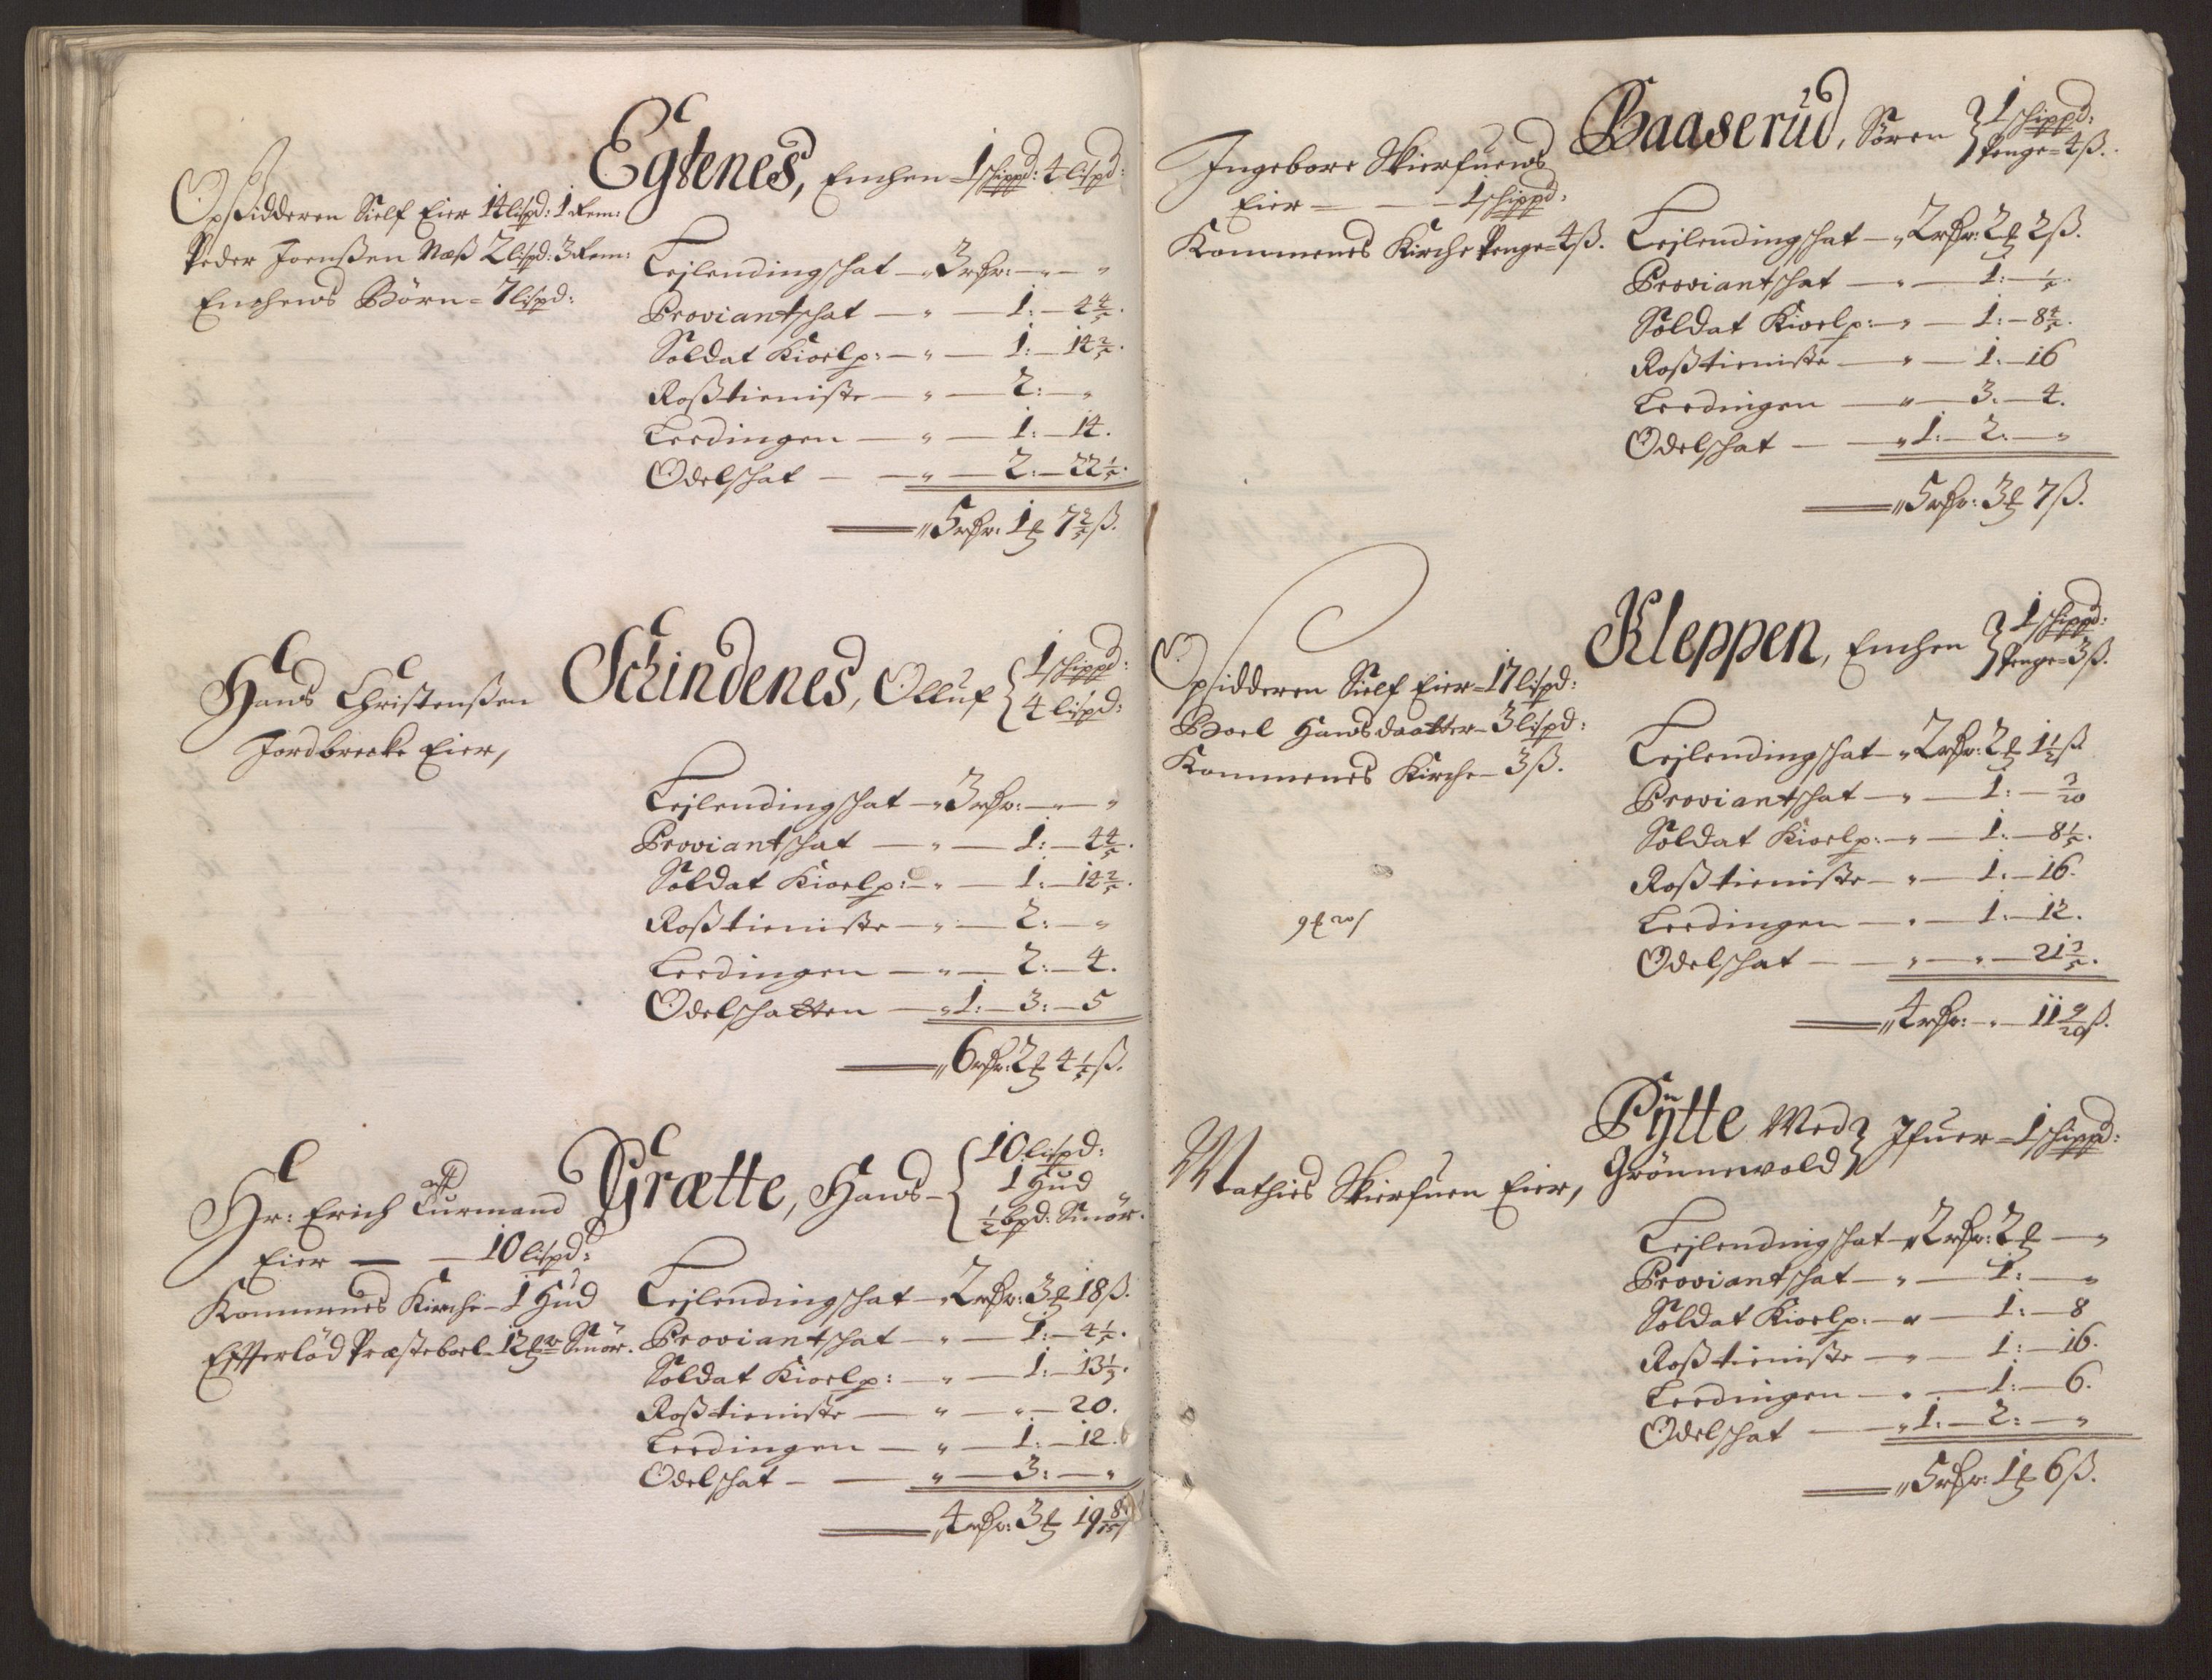 Egtenes, Enchen - 1 schippd: 4 lispd:
Opsidderen Sielf Eier 14 lispd: 1 Rem:
Peder Joenßen Næß 2 lispd: 3 Rem:
Enchens Børn = 7 lispd:
Leilendingschat — " 3 rdr: — " — "
Proviantschat — " — 1: — 4 4/5.
Soldat Kioelp: — " — 1: — 14 2/5.
Roßtieniste — " — 2: — "
Leedingen — " — 1: — 14.
Odelschat — — " — 2: — 22 1/5.
— " 5 rdr: 1 ƶ 7 2/5 ß.
Schindenes, Olluf { 1 schippd: 4 lispd:
Hans Christenßen
Jordbrecke Eier,
Leilendingschat — " 3 rdr: — " — "
Proviantschat — " — 1: — 4 4/5.
Soldat Kioelp: — " — 1: — 14 2/5.
Roßtieniste — " — 2: — "
Leedingen — " — 2: — 4.
Odelschatten — " 1: — 3: — 5
— " 6 rdr: 2 ƶ 4 1/5 ß.
Grætte, Hans - { 10 lispd: 1 Hud 1/2 bpd: Smör.
Hr: Erich Curmand
Eier — — 10 lispd:
Kommenes Kirche - 1 Hud
Effterlöd Præsteboel - 12 Smör.
Leilendingschat — " 2 rdr: 3 ƶ 18 ß.
Proviantschat — " — 1: — 4 1/5.
Soldat Kioelp: — " — 1: — 13 1/3.
Roßtieniste — " — " — 20.
Leedingen — " — 1: — 12.
Odelschat — — " — 3: — "
— " 4 rdr: 3 ƶ 19 8/15
Baaserud, Sören } 1 schippd: Penge = 4 ß.
Ingebore Skierfuens
Eier — — 1 schippd:
Kommenes Kirche Penge = 4 ß.
Leilendingschat — " 2 rdr: 2 ƶ 2 ß.
Proviantschat — " — 1: — 1/5.
Soldat Kioelp: — " — 1: — 8 4/5.
Roßtieniste — " — 1: — 16
Leedingen — " — 3: — 4.
Odelschat — — " 1: — 2: — "
— " 5 rdr: 3 ƶ 7 ß.
Kleppen, Enchen } 1 schippd: Penge = 3 ß.
Opsidderen Sielf Eier = 17 lispd:
Boel Hansdaatter - 3 lispd:
Kommenes Kirche - 3 ß.
Leilendingschat — " 2 rdr: 2 ƶ 1 1/2 ß
Proviantschat — " — 1: — 3/20
Soldat Kioelp: — " — 1: — 8 1/5.
Roßtieniste — " — 1: — 16.
9 ƶ 20 ß
Leedingen — " — 1: — 12.
Odelschat — — " — " — 21 3/5.
— " 4 rdr: — " — 11 9/20 ß.
Pytte Med } Ifuer - 1 schippd:
Grönnewold }
Mathies Skierfuen Eier,
Leilendingschat — " 2 rdr: 2 ƶ — "
Proviantschat — " — 1: — "
Soldat Kioelp: — " — 1: — 8
Roßtieniste — " — 1: — 16.
Leedingen — " — 1: — 6.
Odelschat — — " 1: — 2: — "
— " 5 rdr: 1 ƶ 6 ß.